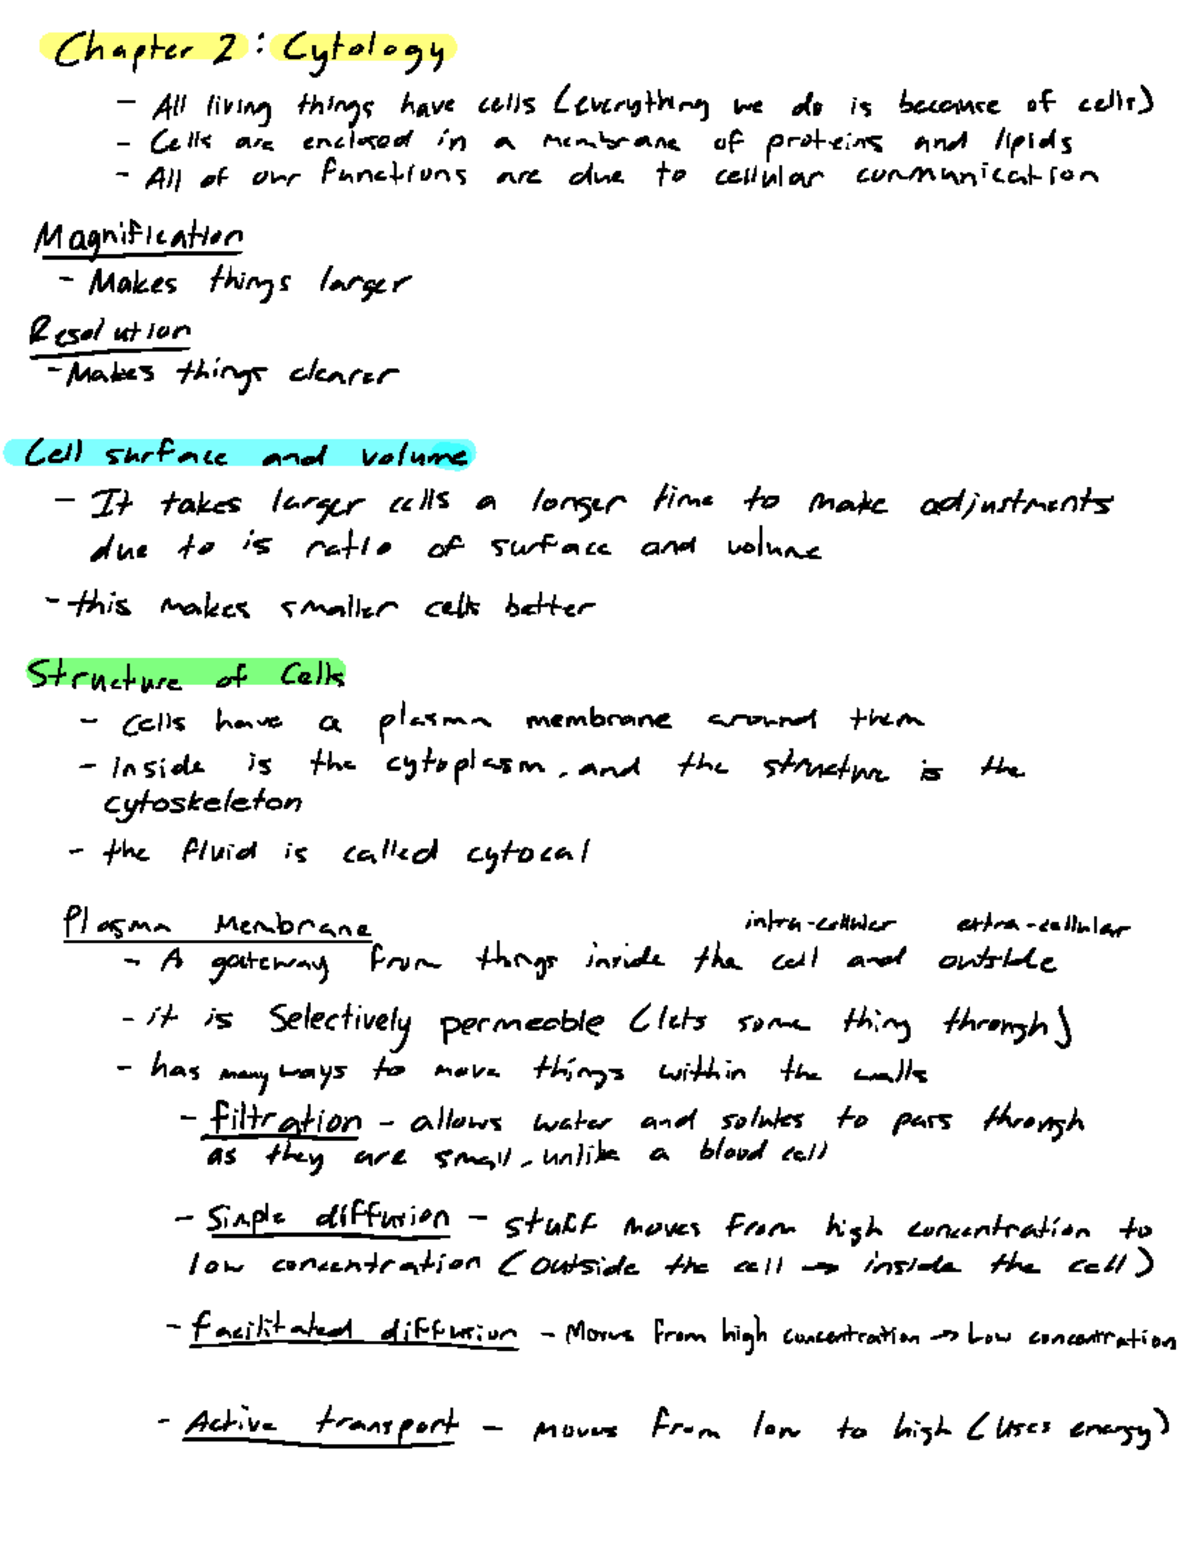 Chapter 2: Cytology
- All living things have cells (everything we do is because of cells)
- Cells are enclosed in a membrane of proteins and lipids
- All of our functions are due to cellular communication
Magnification
- Makes things larger
Resolution
- Makes things clearer
Cell surface and volume
- It takes larger cells a longer time to make adjustments
due to is ratio of surface and volume
- this makes smaller cells better
Structure of Cells
- Cells have a plasma membrane around them
- inside is the cytoplasm, and the structure is the
cytoskeleton
- the fluid is called cytocal
Plasma Membrane
intra-cellular extra-cellular
- A gateway from things inside the cell and outside
- it is Selectively permeable (lets some thing through)
- has many ways to move things within the walls
- filtration - allows water and solutes to pass through
as they are small, unlike a blood cell
- Simple diffusion - stuff moves from high concentration to
low concentration (outside the cell → inside the cell)
- facilitated diffusion - Moves from high concentration → Low concentration
- Active transport - moves from low to high (uses energy)